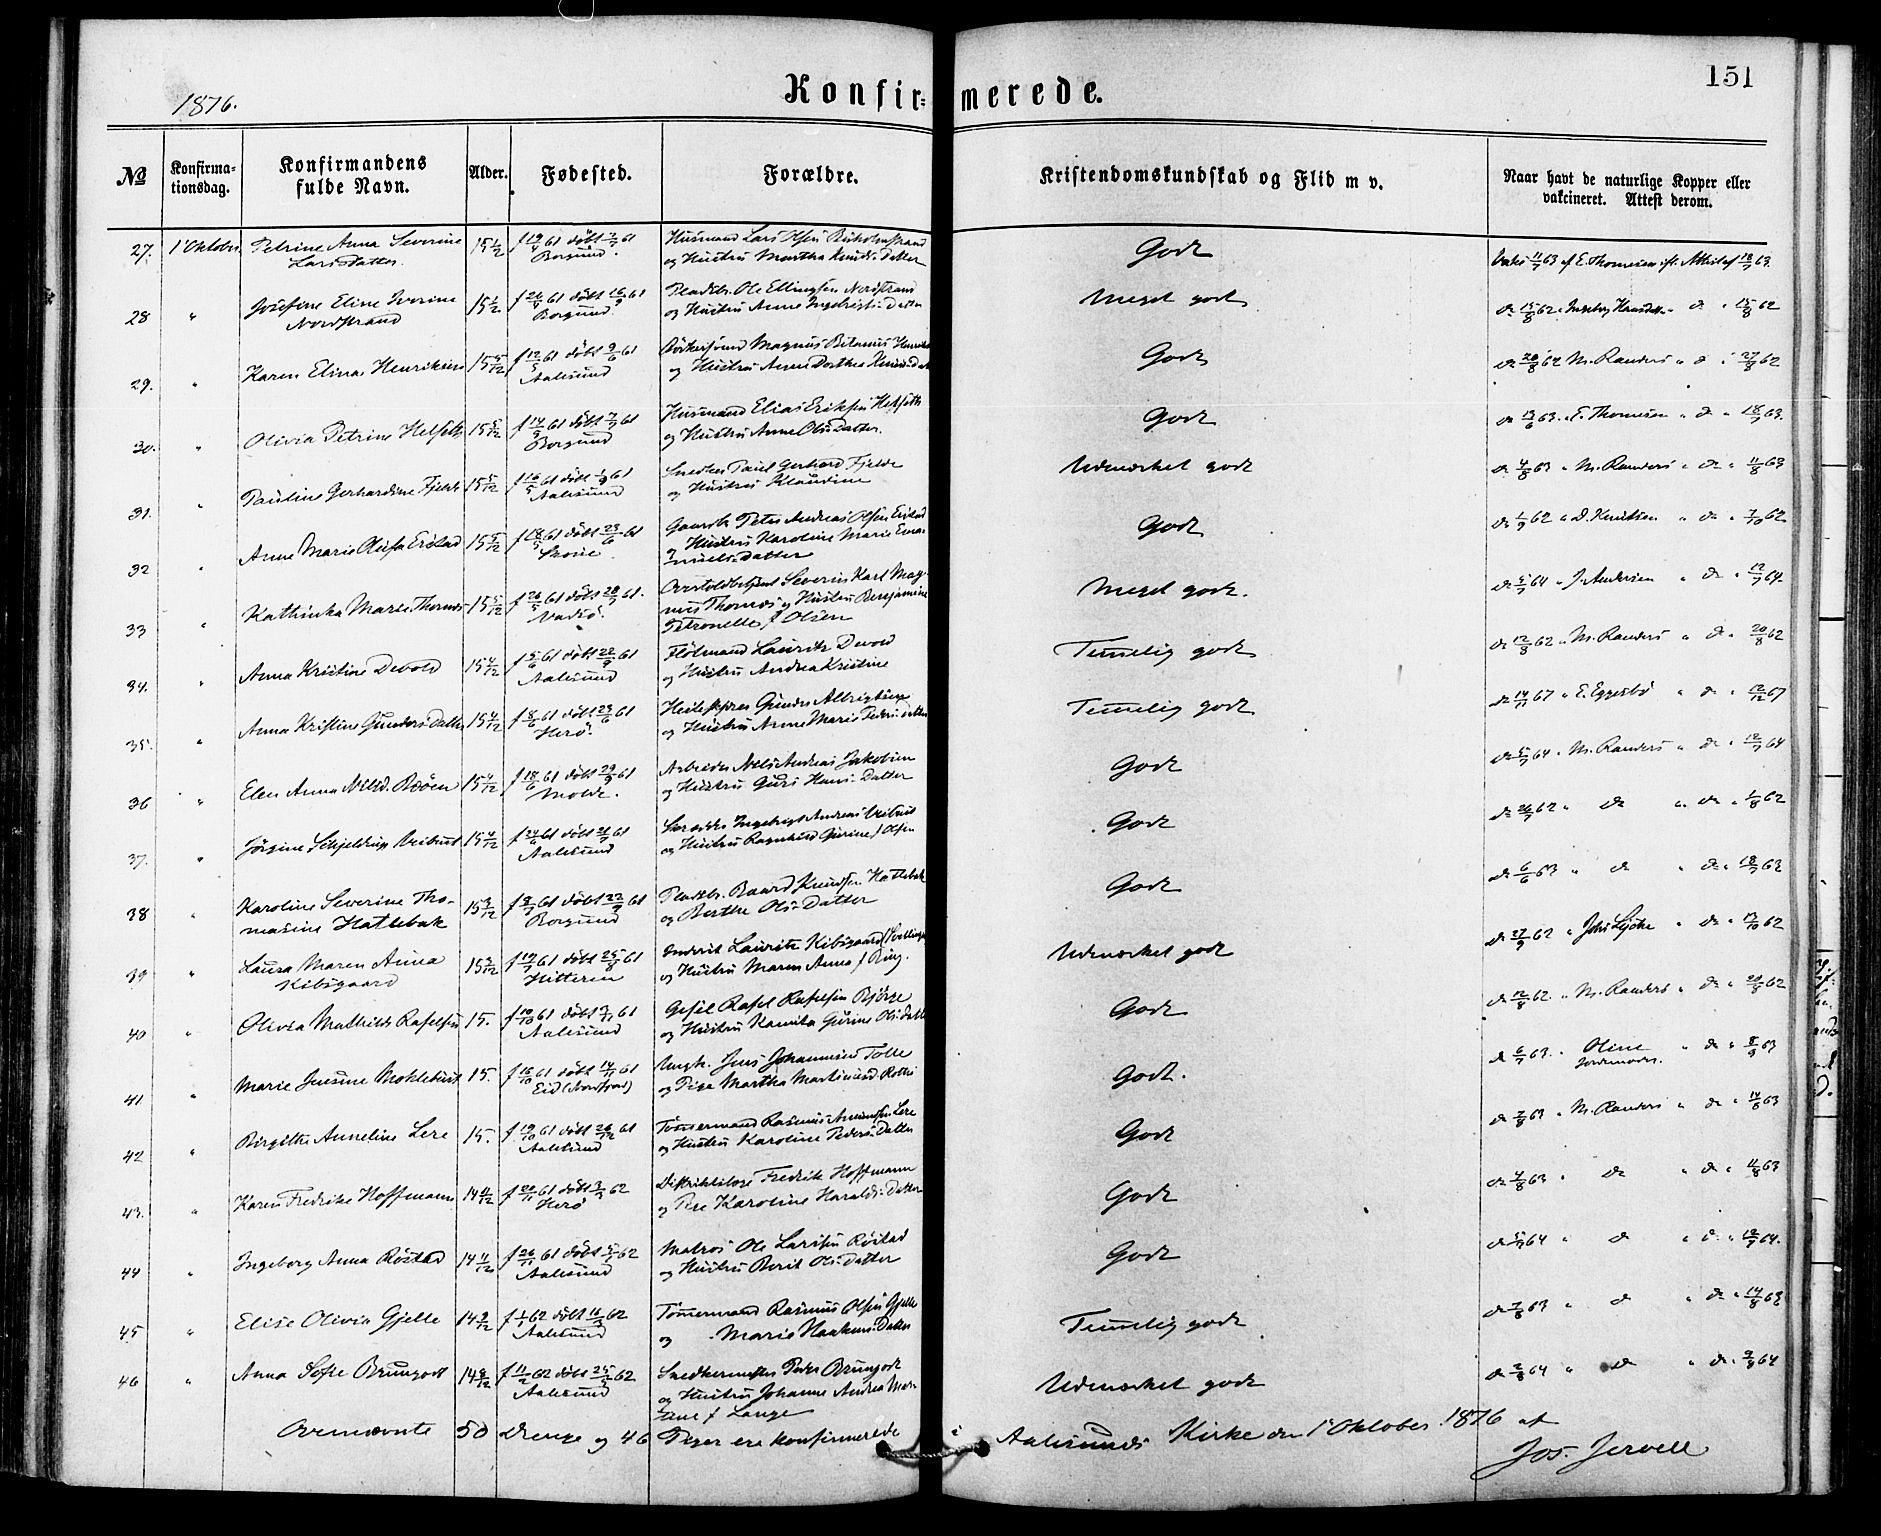 151
1876.
Konfirmerede.
№
Konfirmationsdag.
Konfirmandens fulde Navn.
Alder.
Fødested.
Forældre.
Kristendomskundskab og Flid m v.
Naar havt de naturlige Kopper eller vakcineret. Attest derom.
27. 1 Oktober Petrine Anna Severine Larsdatter. 15 1/2 f 19/4 61 døbt 7/7 61 Borgund. Husmand Lars Olsen og Hustru Martha Knuds-Datter Godt Vakc 11/7 63 af E. Thomesen ifl. Attest af 18/7 63.
28 " Josefine Eline Iverine Nordstrand 15 1/2 f 24/4 61 døbt 16/9 61 Borgund Pladsbr. Ole Ellingsen Nordstrand og Hustru Anne Ingebrigts-Datter Meget godt do 15/8 62 " Ingeborg Hansdtr " do " 15/8 62
29. " Karen Elina Henriksen 15 5/12 f 12/5 61 døbt 9/6 61 Aalesund Bødkersvend Magnus Bitanus Henriksen og Hustru Anne Dorthea Knuds-Dat Godt do 20/8 62 M. Randers " d " 27/8 62
30. " Olivia Petrine Helseth 15 5/12 f 14/5 61 døbt 7/7 61 Borgund Husmand Elias Eriksen Helseth og Hustru Anne Ols-Datter. Godt do 13/6 63. " E. Thomesen " do " 18/7 63.
31. " Pauline Gerhardine Fjelde 15 5/12 f 16/5 61 døbt 1/9 61 Aalesund Snedker Paul Gerhard Fjelde og Hustru Klaudine Udmærket godt do 4/8 63 " M. Randers " do " 11/8 63
32 " Anne Marie Olufa Erstad 15 5/12 f 18/5 61 døbt 23/6 61 Skoue Gaardb. Peter Andreas Olsen Erstad og Hustru Karoline Marie Emanuels-Datter Godt do 1/9 62 " D. Knutsen " do " 7/10 62
33 " Kathinka Marie Thomes 15 5/12 f 26/5 61 døbt 28/7 61. Vadsø. Overtoldbetjent Severin Karl Magnus Thomes og Hustru Benjamine Petronelle f Olsen Meget godt. do 5/7 64 " J. Andersen " do " 12/7 64.
34. " Anna Kristine Devold 15 4/12 f 5/6 61 døbt 22/9 61 Aalesund Flótmand Lauritz Devold og Hustru Andrea Kristine Temmelig godt do 12/8 62 " M. Randers " do " 20/8 62
35. " Anna Kristine Gunders-Datter 15 4/12 f 8/6 61 døbt 23/6 61 Herø. Gunder Albrigtsen og Hustru Anne Marie Peders-datter Temmelig godt do 14/11 67 " E. Eggesbø " do " 12/12 67
36 " Elen Anna Nilsd. Røöen 15 4/12 f 18/6 61 døbt 29/9 61 Molde. Arbeider Nils Andreas Jakobsen og Hustru Guri Hans-Datter Godt do 5/7 64 " M. Randers " do " 12/7 64
37. " Jörgine Schjeldrup Veibust 15 4/12 f 24/6 61 døbt 21/7 61 Aalesund Ingebrigt Andreas Veibust og Hustru Ragnhild Gurine f Olsen Godt do 26/7 62 " do " do " 1/8 62
38 " Karoline Severine Thomasine Hatlebak 15 3/12 f 8/7 61 døbt 22/9 61 Borgund Pladsbr. Baard Knudsen Hatlebak og Berthe Ols-Datter Godt do 6/6 63 " do " do " 18/7 63
39 " Laura Maren Anna Kibsgaard 15 3/12 f 19/7 61 døbt 25/8 61 Hitteren Lauritz Kibsgaard og Hustru Maren Anna f Ring. Udmærket godt do 27/9 62 " Johs Ljöke " do " 13/10 62
40 " Olivia Mathilde Rafelsen 15. f 10/10 61 døbt 3/11 61 Aalesund Gesel Rafel Rafelsen Bjørge og Hustru Kamila Gurine Ols-Datter Godt do 12/8 62. " M. Randers " do " 20/8 62
41 " Marie Jensine Moklebust 15. f 16/10 61 døbt 14/11 61 Eid (Nordfjord) Ungk. Jens Johannesen Tolle og Pige Martha Martinusd. Godt. do 6/7 63. " Oline Jordemoder. " do " 8/9 63
42 " Birgitte Anneline Lere 15. f 19/10 61 døbt 26/12 61 Aalesund Tømmermand Rasmus Amundsen Lere og Hustru Karoline Peders-Datter Godt do 7/8 63 " M. Randers " do " 14/8 63
43. " Karen Fredrike Hoffmann 14 11/12 f 20/11 61 døbt 3/3 62 Herø Distriktslæge Fredrik Hoffmann og Pige Karoline Haralds-Datter Godt do 4/8 63 " do " do " 11/8 63
44 " Ingeborg Anna Røstad 14 11/12 f 26/11 61 døbt 5/1 62 Aalesund Matros Ole Larssen Røstad og Hustru Berit Ols-datter Godt do 5/7 64 " do " do " 12/7 64.
45 " Elise Olivia Gjelle 14 9/12 f 1/1 62 døbt 16/3 62 Aalesund Tømmermand Rasmus Olsen Gjelle og " Marie Haakens-Datter Temmelig godt do 7/8 63 " do " do " 14/8 63
46 " Anna Sofie Brungodt 14 8/12 f 11/2 62 døbt 25/5 62 Aalesund Snedkermester Peder Brungodt og Hustru Johanne Andrea Mariane f Lange Udmærket godt do 2/8 64 " do " do " 9/8 64
Ovennævnte 50 Drenge og 46 Piger ere konfirmerede i Aalesunds Kirke den 1 Oktober 1876 af
Jos. Jervell